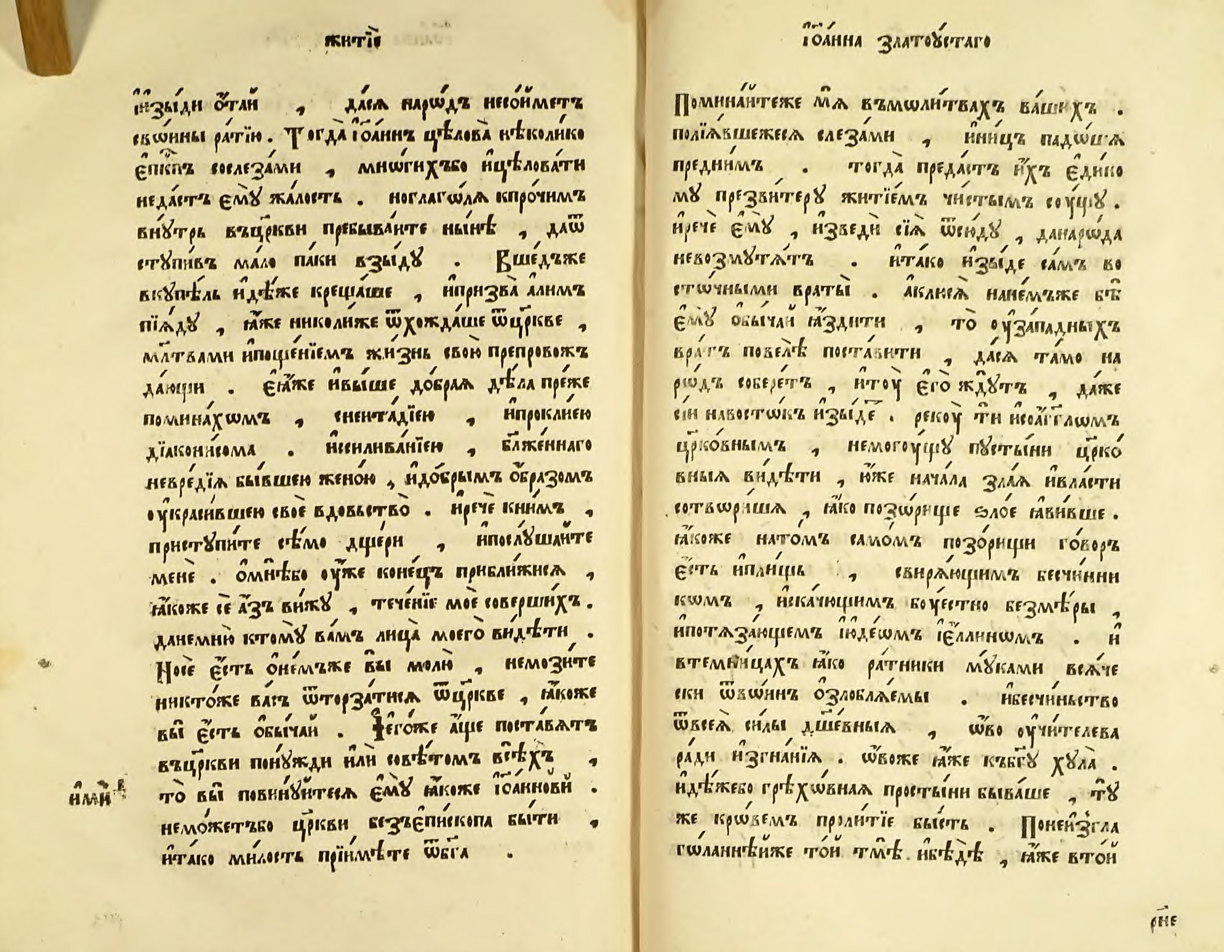 житїѐ
и҆зы́ди ѿ́тай , дася̀ наро́дъ несо́йметъ
свѡ́ины ра́тїю . Тогда̀ і҆ѡа́ннъ цѣлова̀ нѣ́колико
є҆пи́кпъ сослеза́ми , мно́гихъбо и҆цѣлова́ти
неда́стъ є҆мꙋ̀ жа́лость . ноглаго́ля кпро́чимъ
внꙋ́трь въцр҃кви пребыва́йте ны́нѣ , даѿ
стꙋпи́въ ма́ло па́ки взы́дꙋ . Вше́дъже
вкꙋпѣ́ль и҆дѣ́же креща́ше , и҆призва̀ а҆ли́мъ
пїа́дꙋ , ꙗ҆́же николи́же ѿхожда́ше ѿцр҃кве ,
мл҃твами и҆поще́нїемъ жи́знь свою̀ препровож
да́ющи . є҆ꙗ҆́же и҆вы́ше до́брая дѣ́ла пре́же
помина́хомъ , сиента́дїею , и҆прокли́ею
дїакони́сома . и҆ссилива́нїею , бл҃же́ннаго
невре́дїя бы́вшею жено́ю , и҆до́брымъ о҆́бразомъ
оу҆краси́вшею своѐ вдовьство̀ . и҆речѐ кни́мъ ,
пристꙋпи́те сѣ́мо дще́ри , и҆послꙋ́шайте
менѐ . о҆мнѣ́бо оу҆́же коне́цъ прибли́жися ,
ꙗ҆́коже сѐ а҆́зъ ви́жꙋ , тече́нїе моѐ соверши́хъ .
данемню̀ ктомꙋ̀ ва́мъ лица̀ моего̀ ви́дѣти .
Носѐ є҆́сть о҆не́мъже вы̀ молю̀ , немози́те
никто́же ва́съ ѿторза́тися ѿцр҃кве , ꙗ҆́коже
вы̀ є҆́сть о҆бы́чай . Є҆гоже а҆́ще поста́вятъ
въцр҃кви понꙋ́жди и҆лѝ совѣ́томъ всѣ́хъ ,
то̀ вы̀ повинꙋ́йтеся є҆мꙋ̀ ꙗ҆́коже і҆ѡа́ннови .
немо́жетъбо цр҃кви безъепи́скопа бы́ти ,
и҆та́ко ми́лость прїи́мѣте ѿбг҃а .
і҆ѡа́нна златоꙋ́стаго
Помина́йтеже мя̀ въмоли́твахъ ва́шихъ .
полїя́вшежеся слеза́ми , и҆ни́цъ падо́шя
предни́мъ . тогда̀ преда́стъ и҆́хъ є҆ди́но
мꙋ презви́терꙋ житїе́мъ чи́стымъ сꙋ́щꙋ .
и҆речѐ є҆мꙋ̀ , и҆зведѝ сїя̀ ѿсю́дꙋ , данаро́да
невозмꙋтя́тъ . и҆та́ко и҆зы́де са́мъ во
сто́чными враты̀ . а҆клися̀ нане́мъже бѣ̀
є҆мꙋ̀ о҆бы́чай ꙗ҆́здити , то̀ оу҆за́падныхъ
вра́тъ повелѣ̀ поста́вити , дася̀ та́мо на
ро́дъ собере́тъ , и҆тꙋ̀ є҆го̀ ждꙋ́тъ , да́же
сїѝ навосто́къ и҆зы́де . рекꙋ́ ти и҆соа҆́гг҃ломъ
цр҃ко́внымъ , немогꙋ́щꙋ пꙋсты́ни цр҃ко́
вныя ви́дѣти , ю҆́же нача́ла зла́я и҆вла́сти
сотвори́шя , ꙗ҆́ко позо́рище ѕло́е ꙗ҆ви́вше .
ꙗ҆́коже нато́мъ само́мъ позо́рищи го́воръ
є҆́сть и҆пли́щь , свиря́ющимъ бесчи́нни
комъ , и҆ска́чющимъ бо́уестно безмѣ́ры ,
и҆потяза́ющемъ і҆юде́омъ і҆е́ллиномъ . и҆
втемни́цахъ ꙗ҆́ко ра́тники мꙋ́ками вся́че
ски ѿво́инъ о҆злобля́емы . и҆бесчи́ньство
ѿвсея̀ си́лы дш҃е́вныя , ѡ҆́во оу҆чи́телева
ра́ди и҆згна́нїя . ѡ҆́воже ꙗ҆́же къбг҃ꙋ хꙋла̀ .
и҆дѣ́жебо грѣхо́вная просты́ни быва́ше , тꙋ̀
же кро́вемъ проли́тїе бы́сть . Понеи҆згла
го́ланнѣйже то́й тмѣ̀ и҆бѣдѣ̀ , ꙗ҆́же вто́й
рн҃е